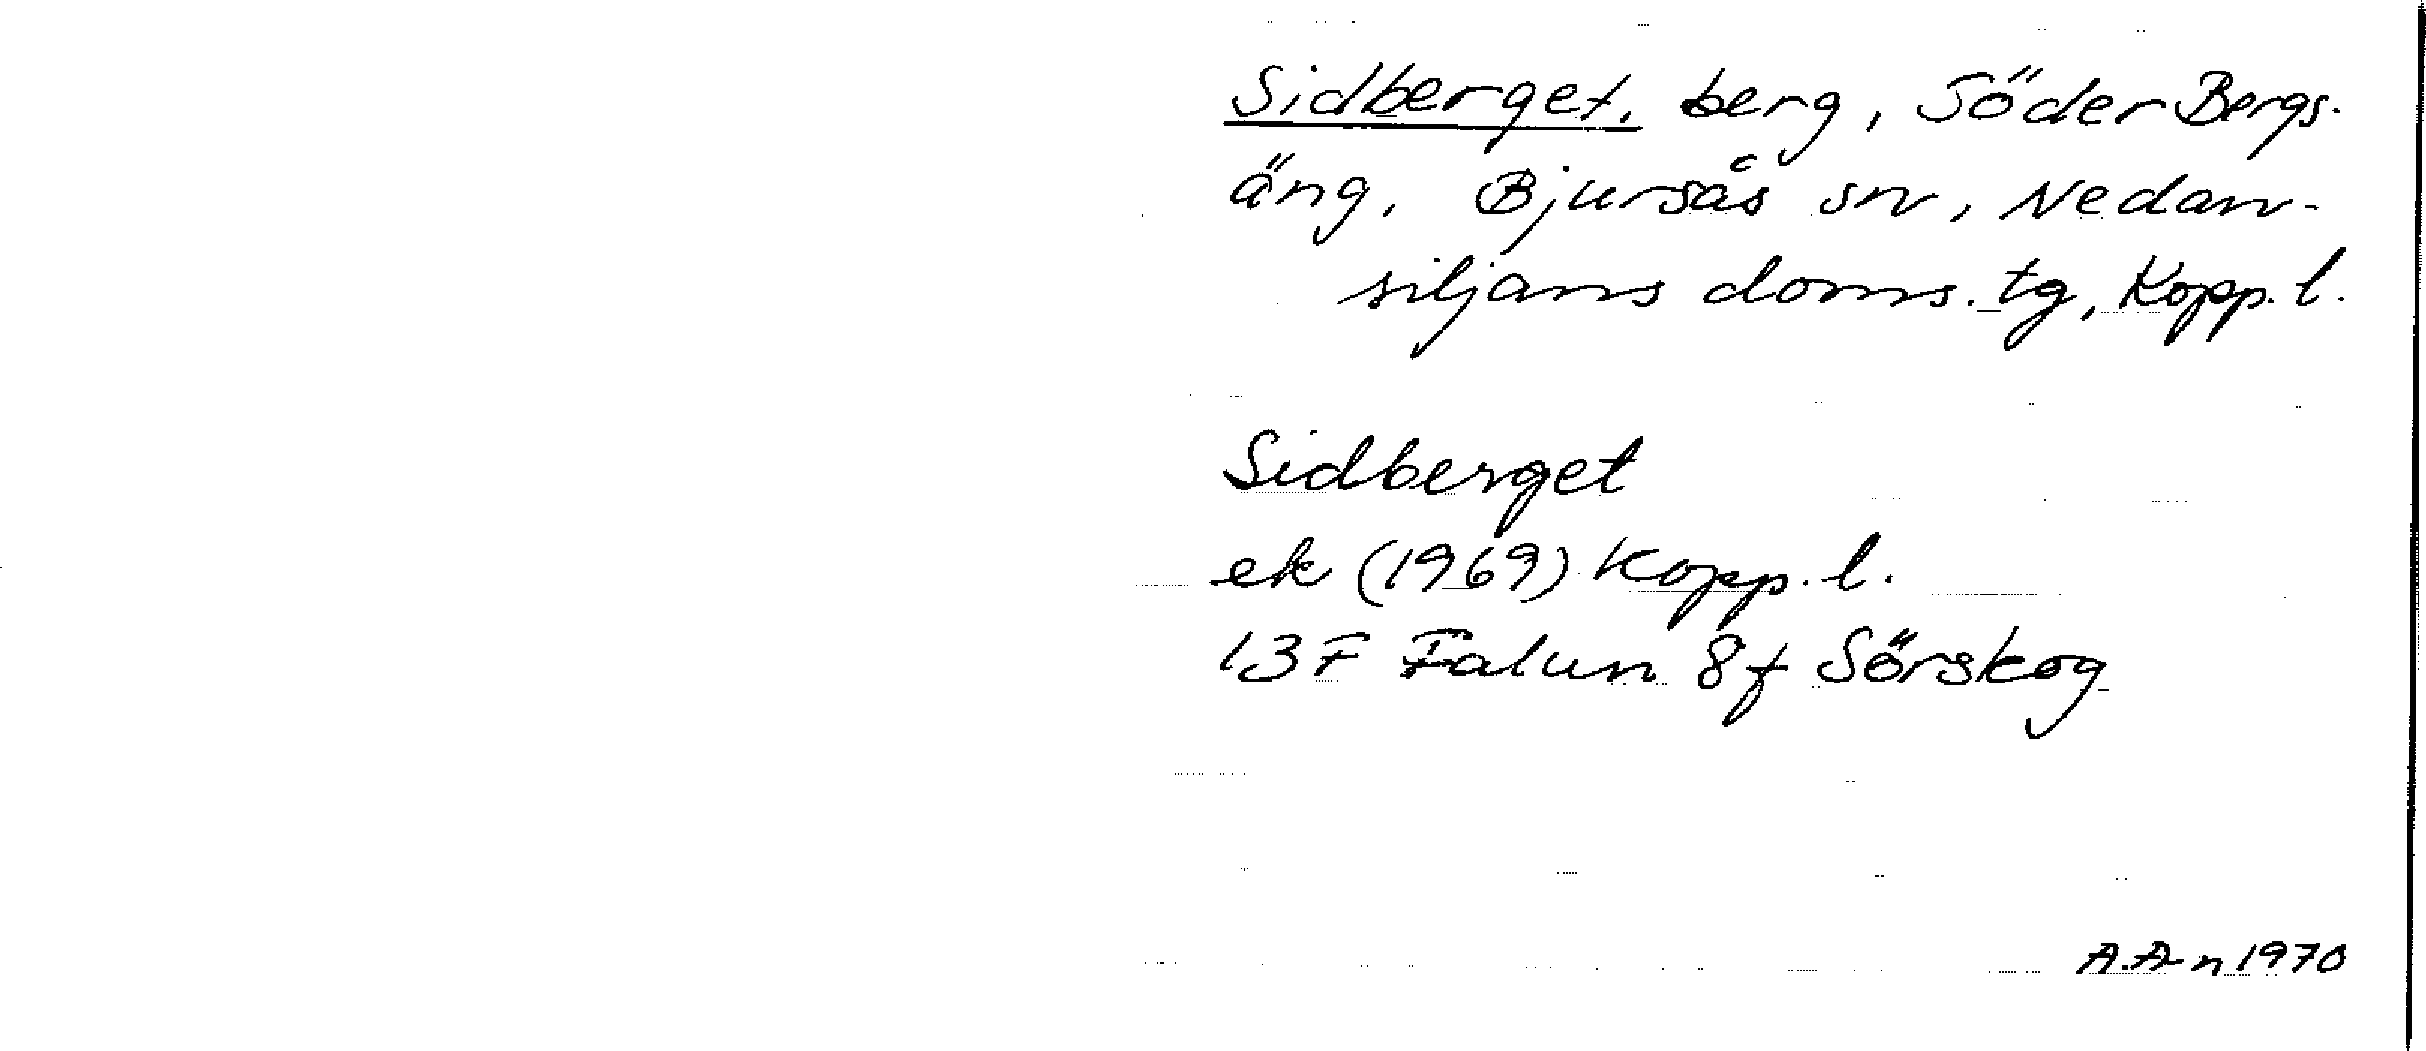 Sidberget, berg, Söder Bergs-
äng, Bjursås sn, Nedan-
siljans doms. tg, Kopp. l.
Sidberget
ek (1969) Kopp. l.
13F Falun 8f Sörskog
A.A-n 1970